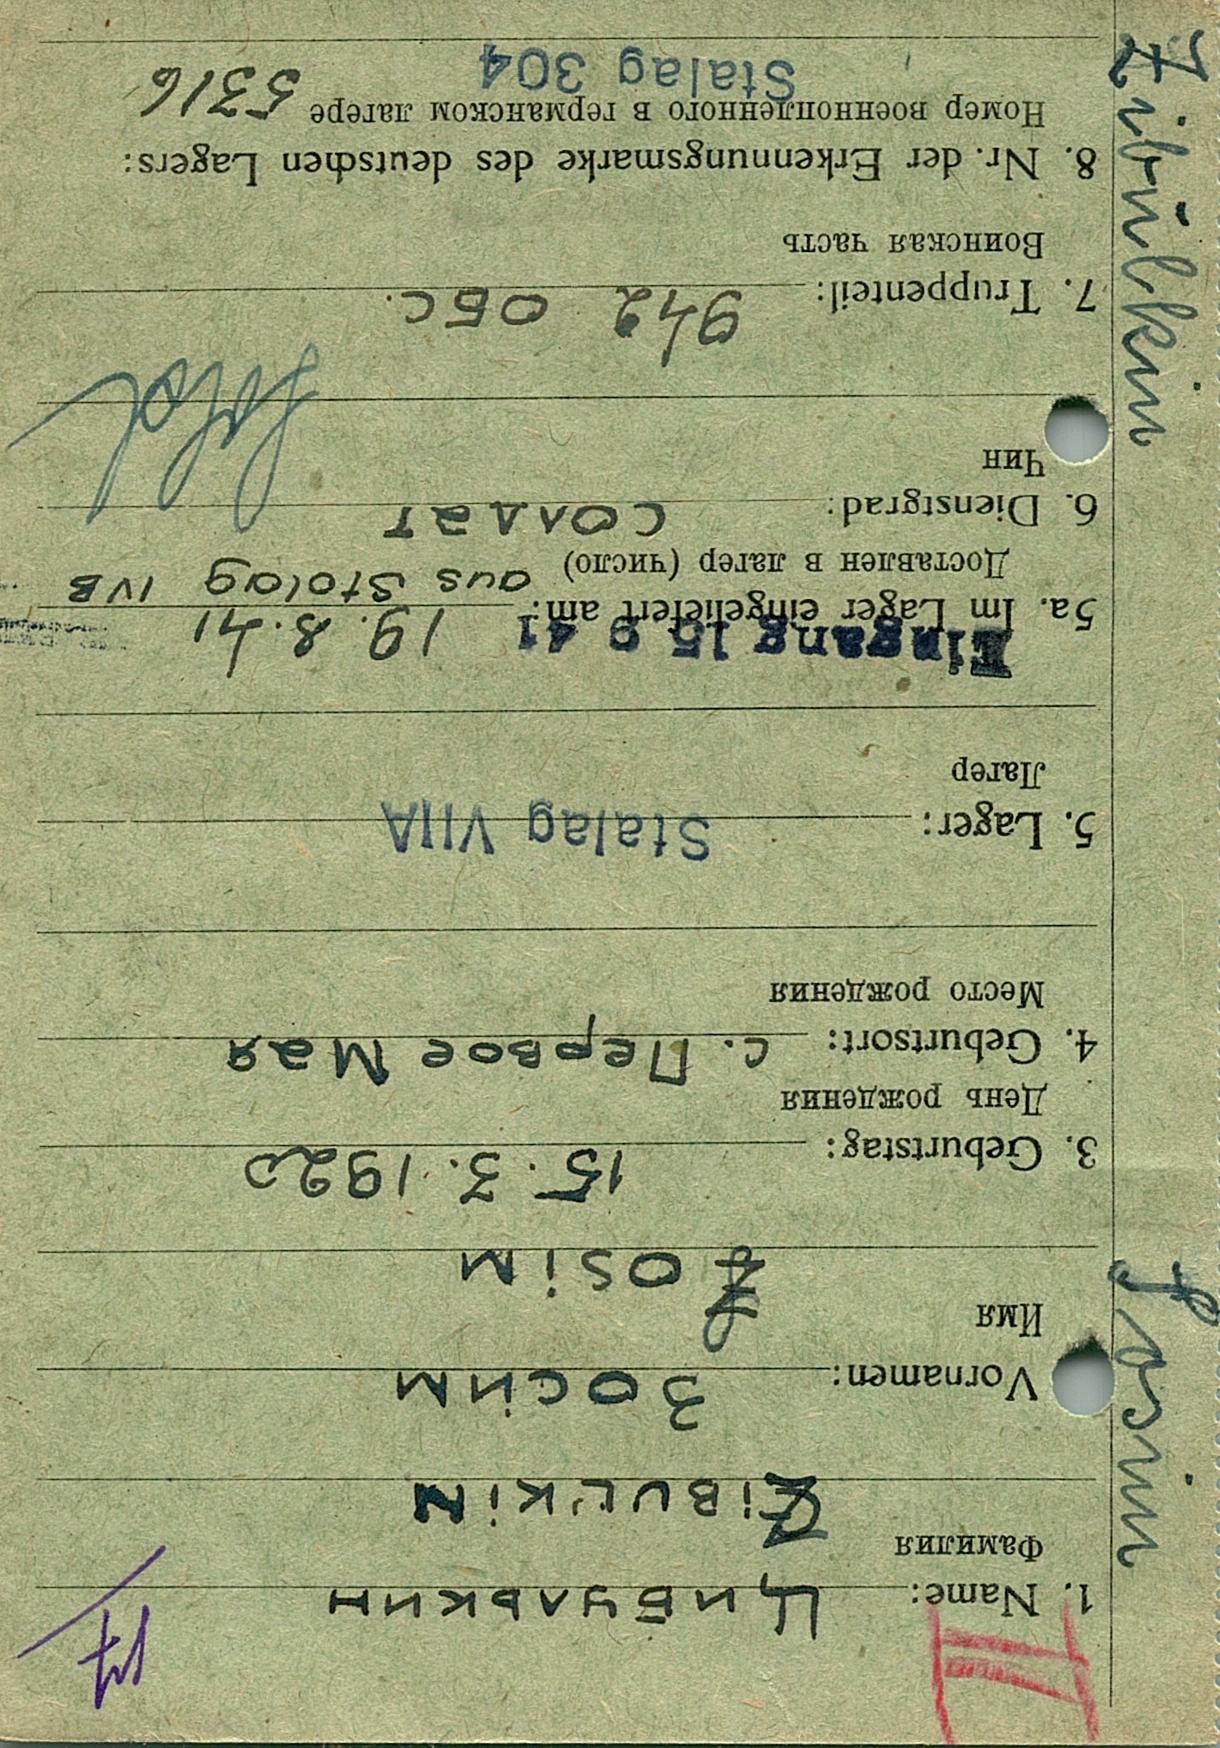 1. Name: Цибулькин
Фамилия
Zibul'kin
Vornamen: Зосим
Имя
Zosim
3. Geburtstag: 15. 3. 1920
День рождения
4. Geburtsort: с. Первое Мая
Место рождения
5. Lager: Stalag VIIA
Лагер
Eingang 15 9 41
5a. Im Lager eingeliefert am: 19. 8. 41
Доставлен в лагер (число) aus Stalag IVB
6. Dienstgrad: солдат
Чин
7. Truppenteil: 942 ОБС.
Воинская часть
8. Nr. der Erkennungsmarke des deutschen Lagers:
Номер военнопленного в германском лагере 5316
Stalag 304
Zibulkin Sosim